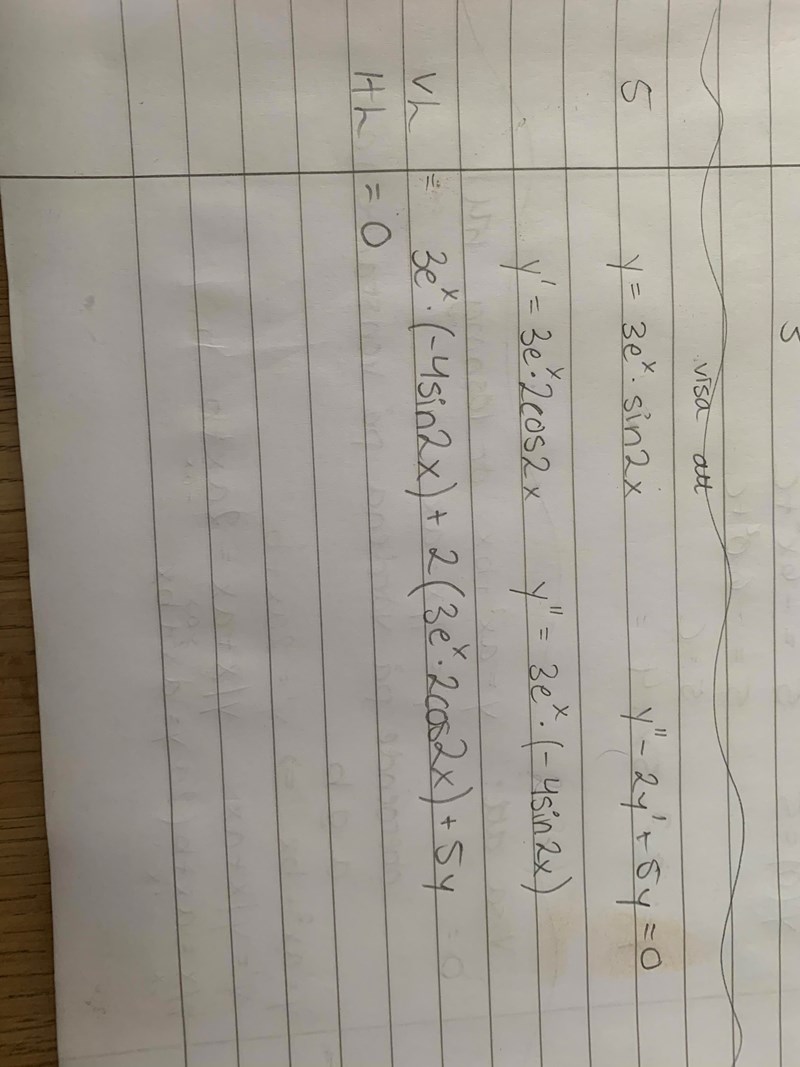 visa att
5 y = 3eˣ · sin2x y'' - 2y' + 5y = 0
y' = 3eˣ · 2cos2x y'' = 3eˣ · (-4sin2x)
VL = 3eˣ · (-4sin2x) + 2(3eˣ · 2cos2x) + 5y
HL = 0